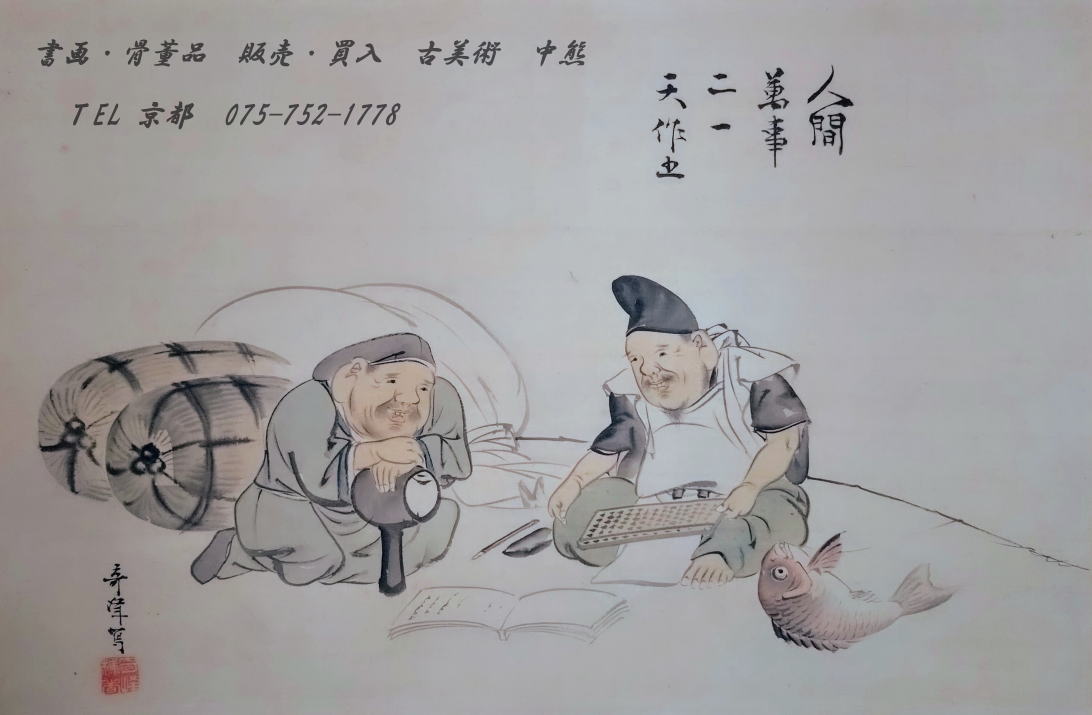 書画・骨董品　販売・買入　古美術　中熊
TEL 京都　075-752-1778
人間
萬事
二一
天作五